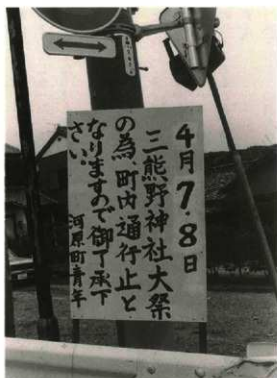 4月7.8日
三熊野神社大祭
の為、町内通行止と
なりますので御了承下
さい。
河原町青年